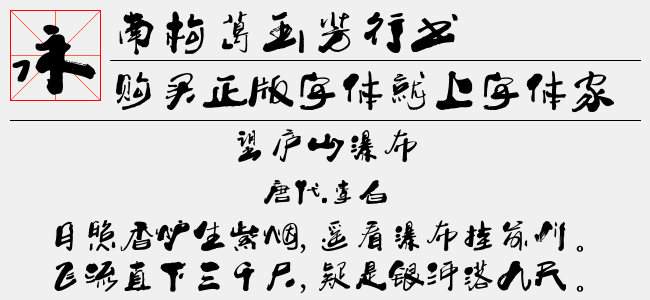 永
南构行书
购买正版字体就上字体家
望庐山瀑布
唐代.李白
日照香炉生紫烟,遥看瀑布挂前川。
飞流直下三千尺,疑是银河落九天。